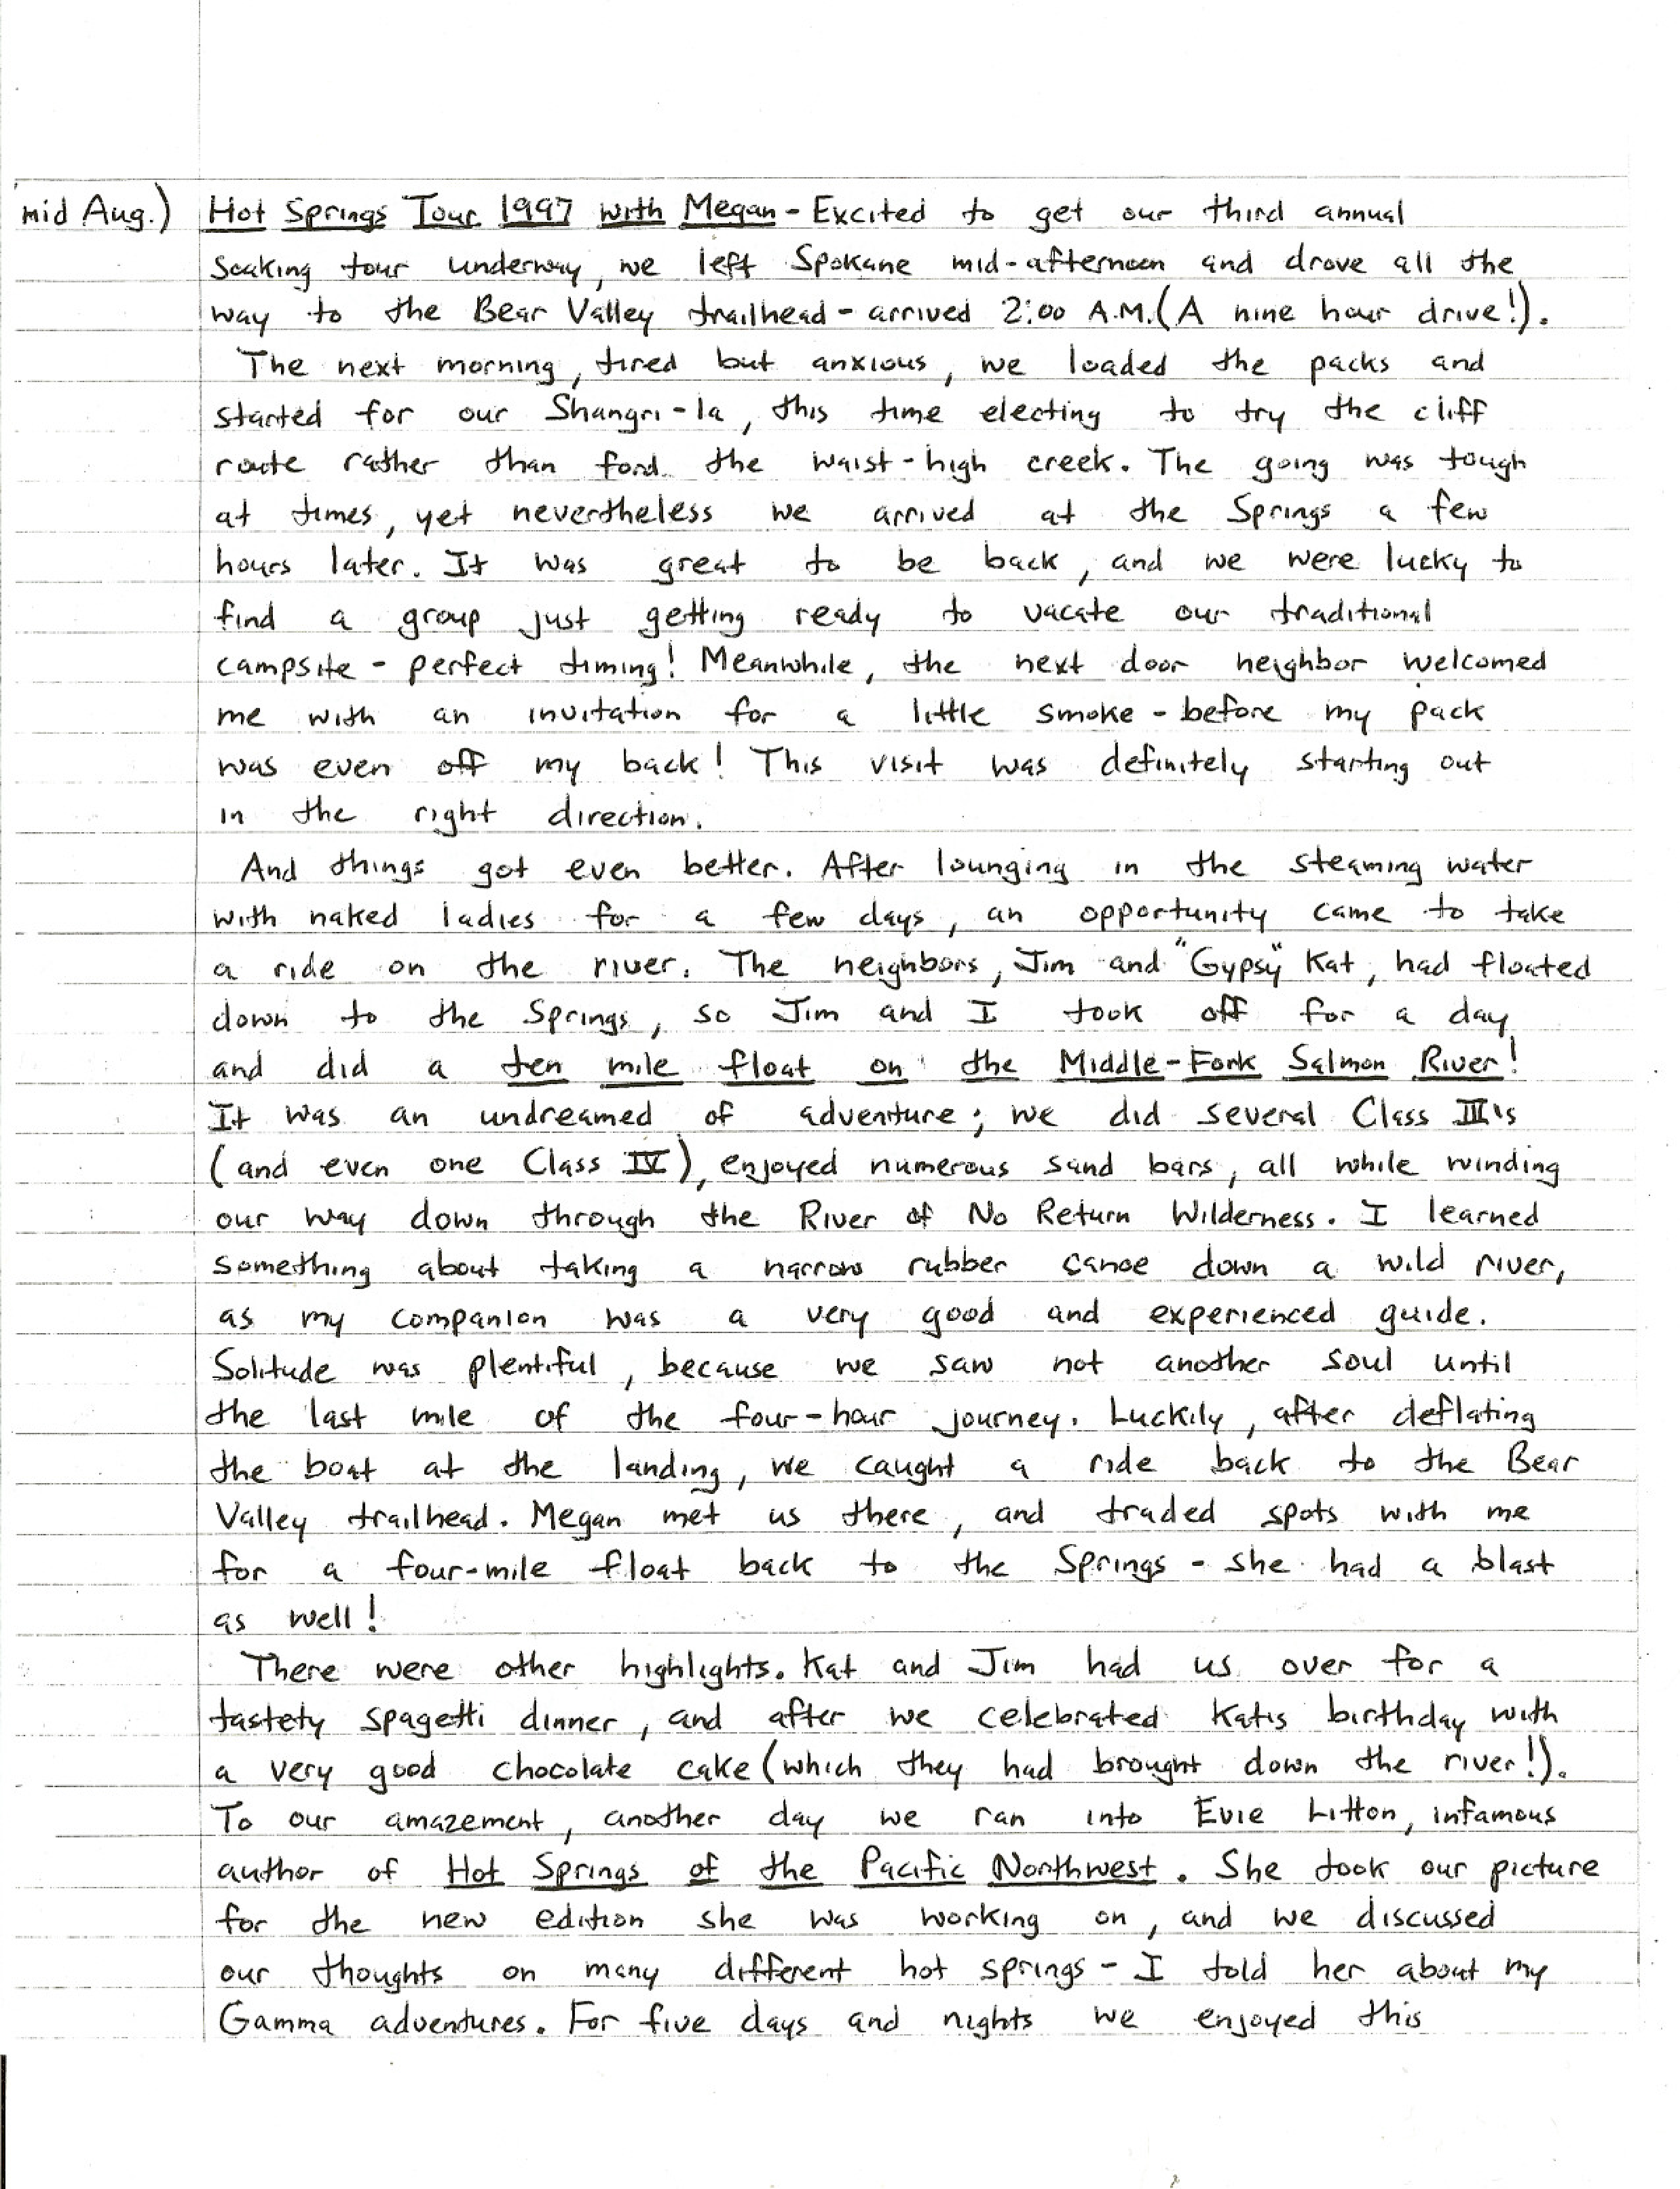 mid Aug.) Hot Springs Tour 1997 with Megan - Excited to get our third annual
soaking tour underway, we left Spokane mid-afternoon and drove all the
way to the Bear Valley trailhead - arrived 2:00 A.M. (A nine hour drive!).
The next morning, tired but anxious, we loaded the packs and
started for our Shangri-la, this time electing to try the cliff
route rather than ford the waist-high creek. The going was tough
at times, yet nevertheless we arrived at the Springs a few
hours later. It was great to be back, and we were lucky to
find a group just getting ready to vacate our traditional
campsite - perfect timing! Meanwhile, the next door neighbor welcomed
me with an invitation for a little smoke - before my pack
was even off my back! This visit was definitely starting out
in the right direction.
And things got even better. After lounging in the steaming water
with naked ladies for a few days, an opportunity came to take
a ride on the river. The neighbors, Jim and "Gypsy" Kat, had floated
down to the Springs, so Jim and I took off for a day
and did a ten mile float on the Middle-Fork Salmon River!
It was an undreamed of adventure; we did several Class III's
(and even one Class IV), enjoyed numerous sand bars, all while winding
our way down through the River of No Return Wilderness. I learned
something about taking a narrow rubber canoe down a wild river,
as my companion was a very good and experienced guide.
Solitude was plentiful, because we saw not another soul until
the last mile of the four-hour journey. Luckily, after deflating
the boat at the landing, we caught a ride back to the Bear
Valley trailhead. Megan met us there, and traded spots with me
for a four-mile float back to the Springs - she had a blast
as well!
There were other highlights. Kat and Jim had us over for a
tastety spagetti dinner, and after we celebrated Kat's birthday with
a very good chocolate cake (which they had brought down the river!).
To our amazement, another day we ran into Evie Litton, infamous
author of Hot Springs of the Pacific Northwest. She took our picture
for the new edition she was working on, and we discussed
our thoughts on many different hot springs - I told her about my
Gamma adventures. For five days and nights we enjoyed this